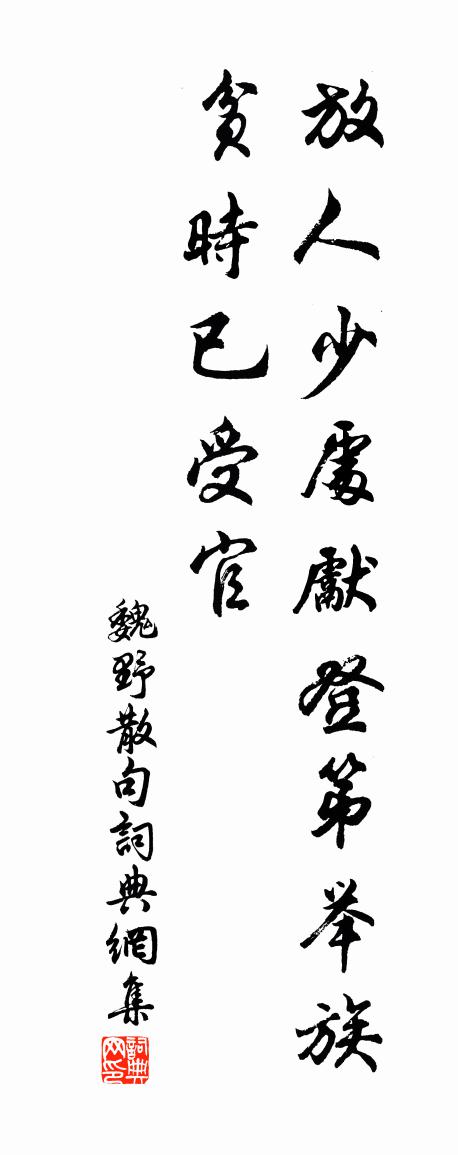 放人少處獻登第举族
貧時已受官
魏野散句詞典網集
詞典网印